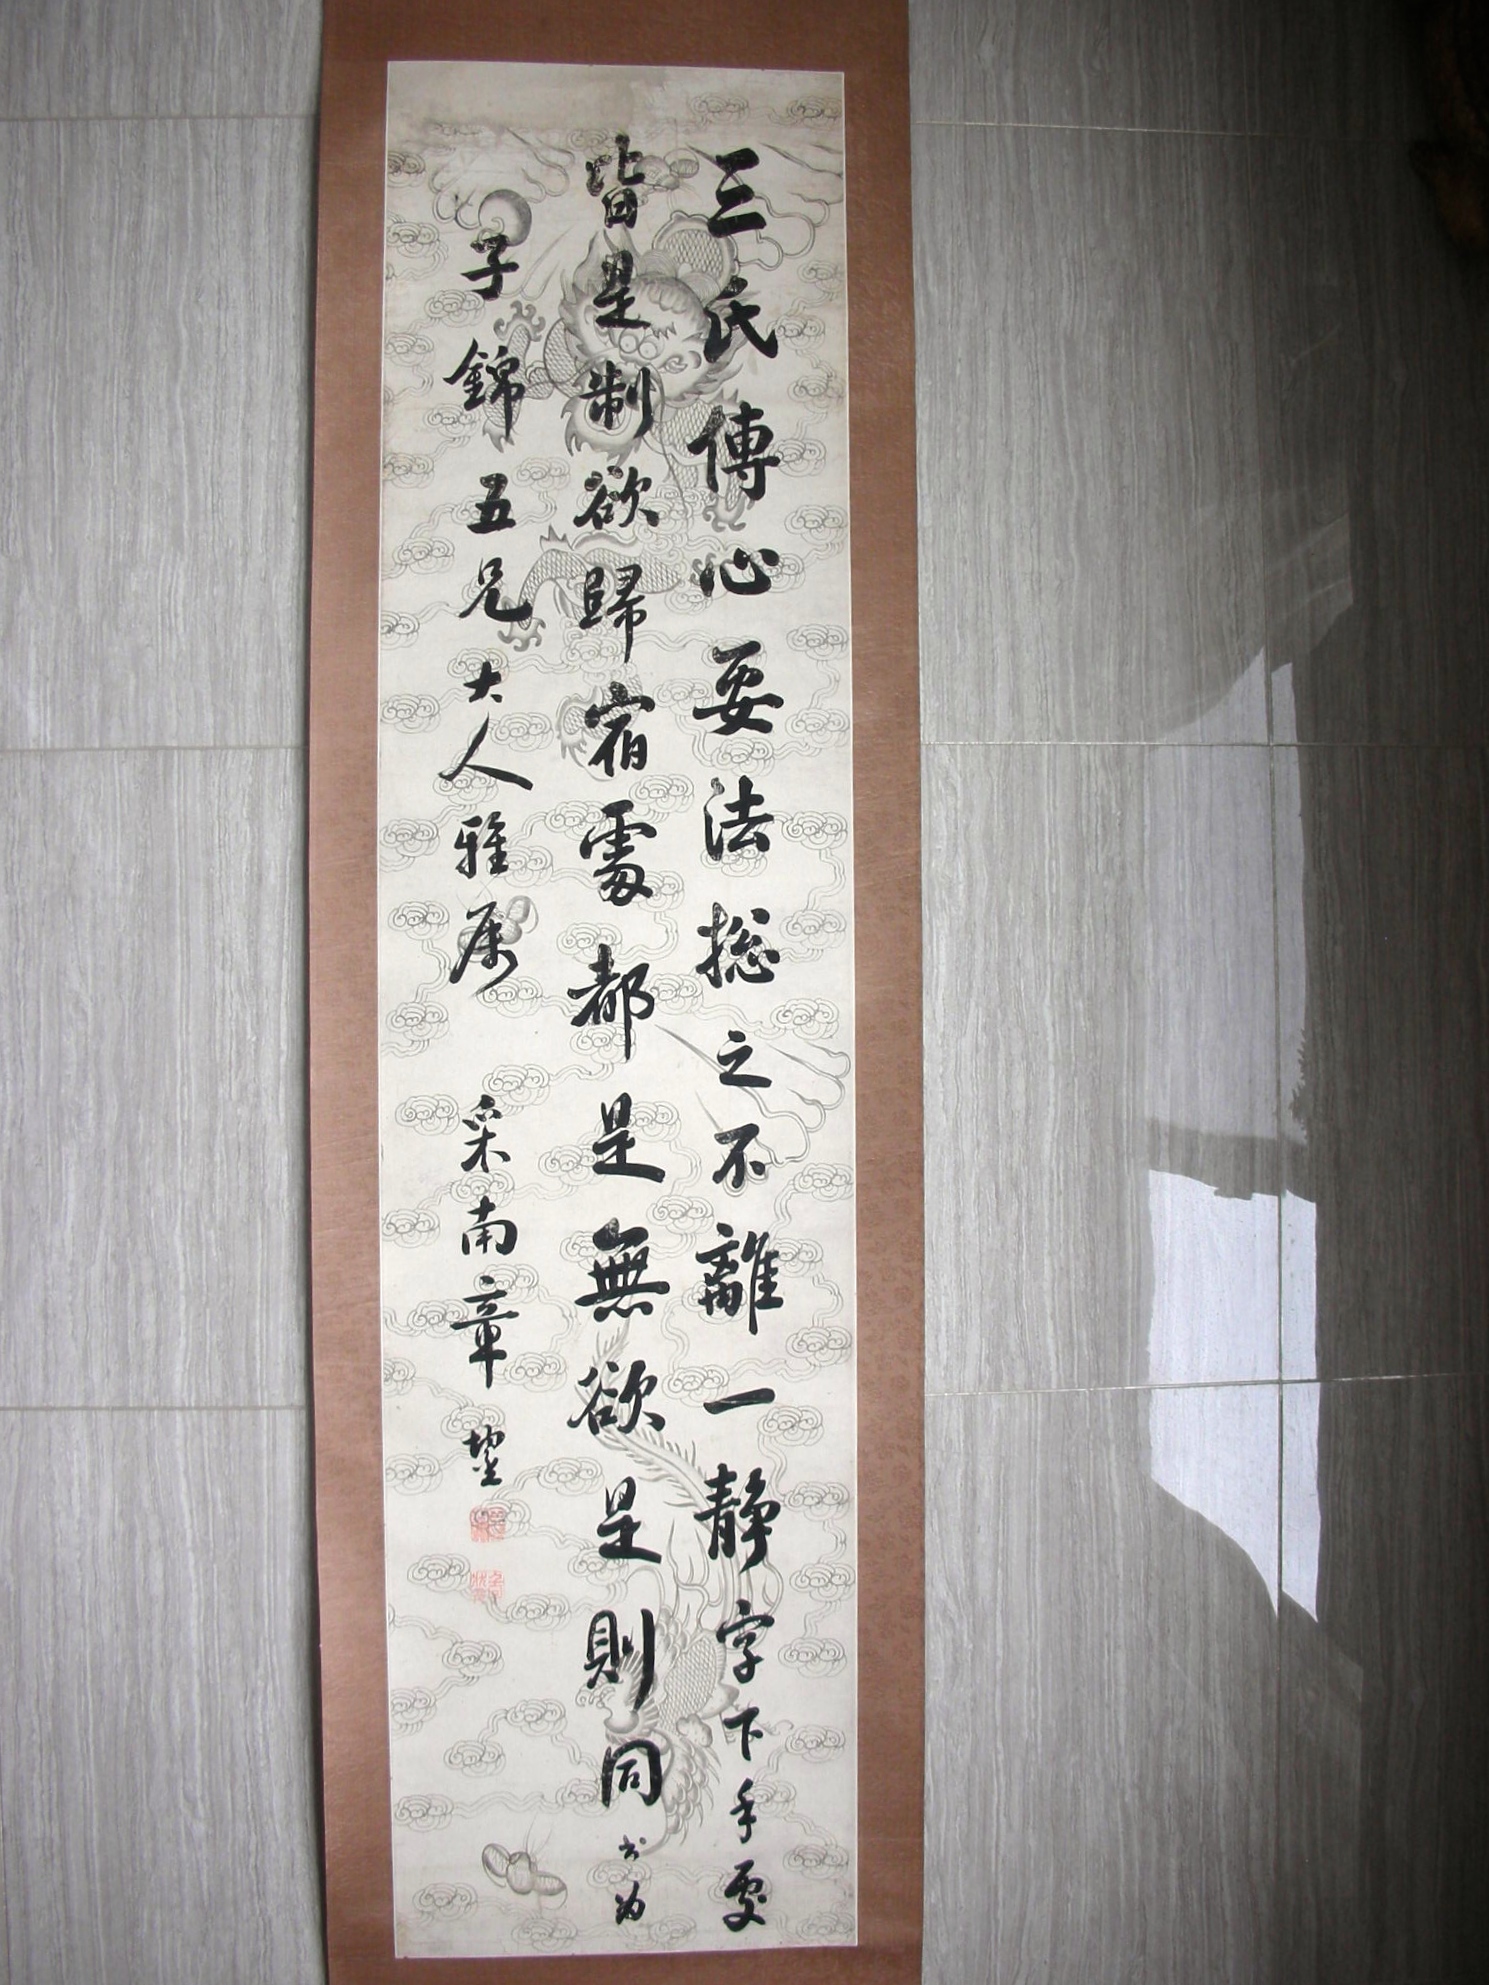 三氏傳心要法揔之不離一静字下手處
皆是制欲歸宿處都是無欲是則同书为
子錦五兄大人雅属 采南章鋆